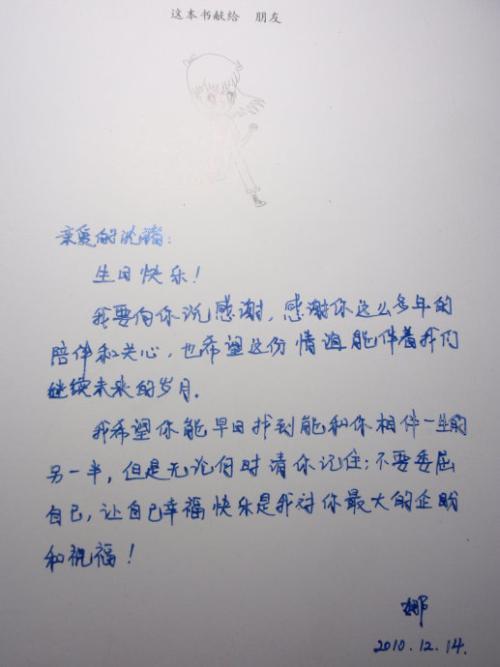 这本书献给 朋友
亲爱的沈猪:
生日快乐!
我要向你说感谢,感谢你这么多年的
陪伴和关心,也希望这份情谊能伴着我们
继续未来的岁月。
我希望你能早日找到能和你相伴一生的
另一半,但是无论何时请你记住:不要委屈
自己,让自己幸福快乐是我对你最大的企盼
和祝福!
娜
2010.12.14.